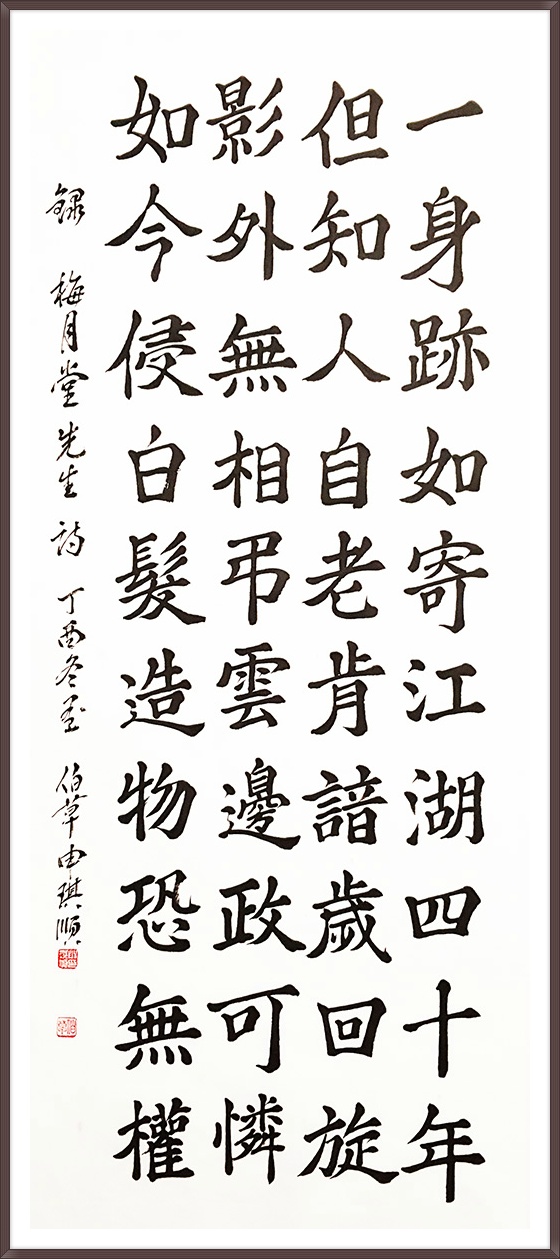 一身跡如寄江湖四十年
但知人自老肯諳歲回旋
影外無相弔雲邊政可憐
如今侵白髮造物恐無權
錄 梅月堂先生詩 丁酉冬至 伯草申琪順